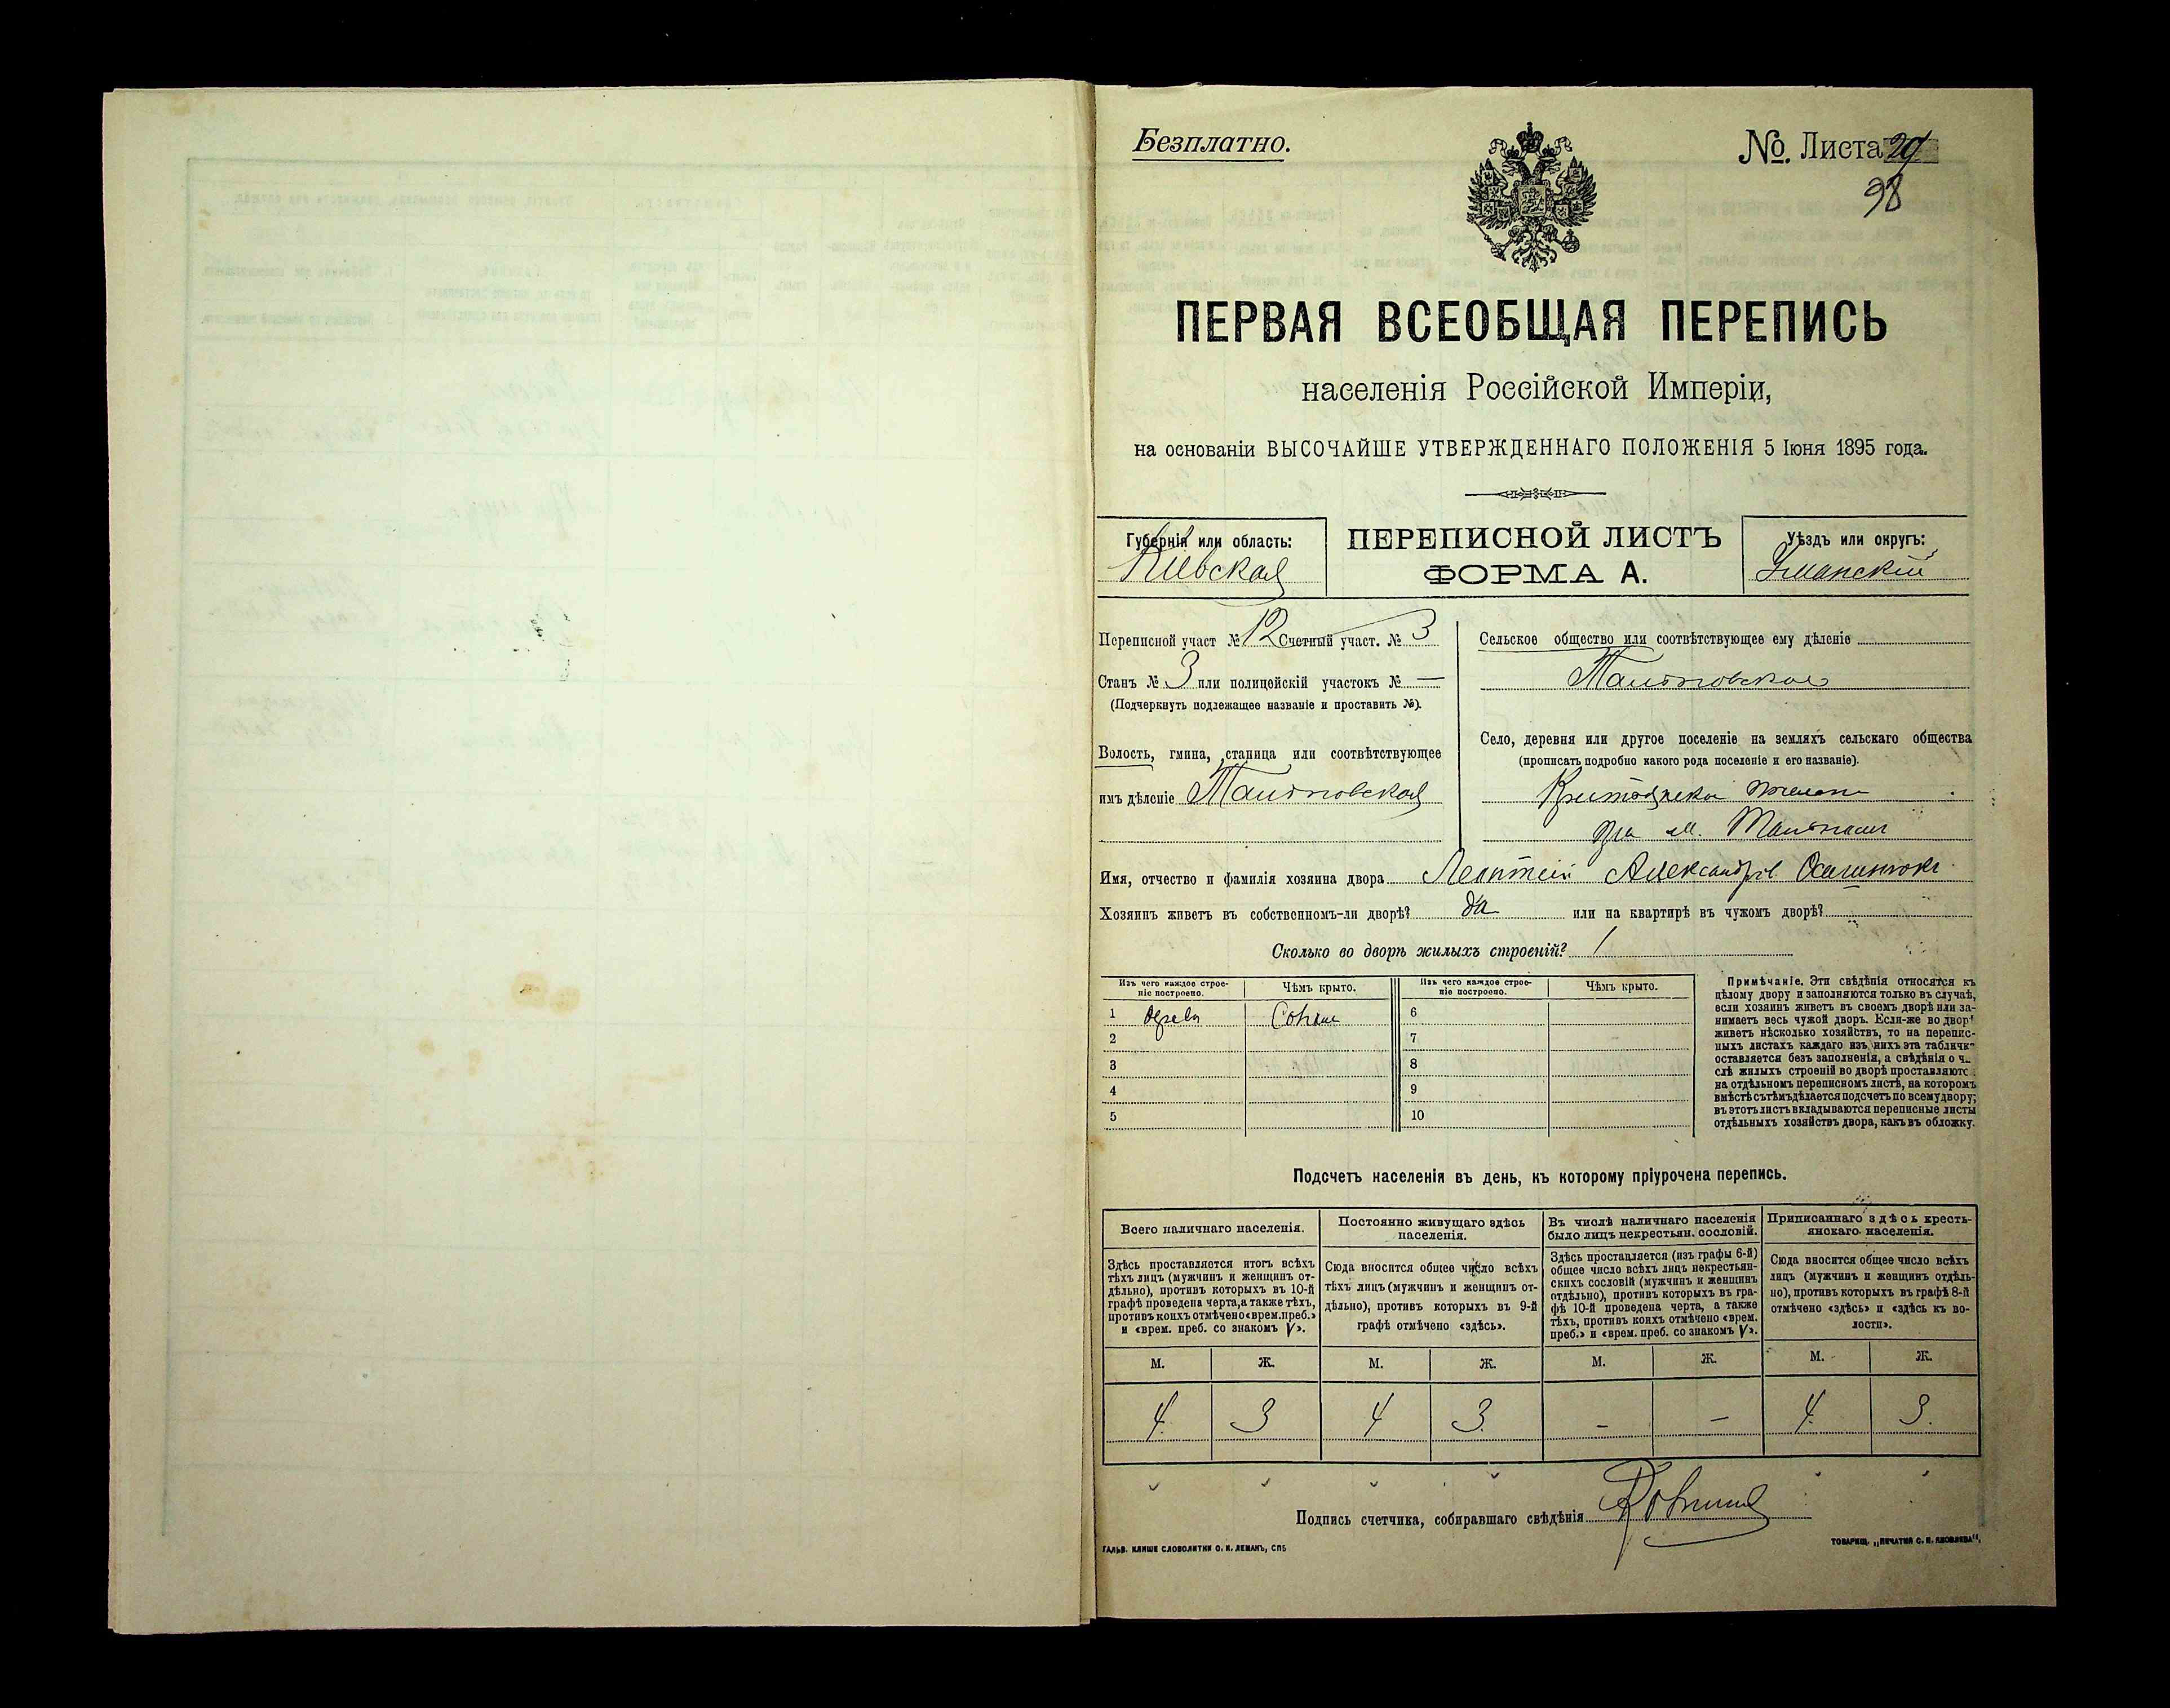 Безплатно.
№. Листа 29
98
ПЕРВАЯ ВСЕОБЩАЯ ПЕРЕПИСЬ
населенія Россійской Имперіи,
на основаніи ВЫСОЧАЙШЕ УТВЕРЖДЕННАГО ПОЛОЖЕНІЯ 5 Іюня 1895 года.
Губернія или область:
Кіевская
ПЕРЕПИСНОЙ ЛИСТЪ
ФОРМА А.
Уѣздъ или округъ:
Уманскій
Переписной участ № 12 Счетный участ. № 3
Станъ № 3 или полицейскій участокъ № —
(Подчеркнуть подлежащее названіе и проставить №).
Волость, гмина, станица или соотвѣтствующее
имъ дѣленіе Тальновская
Сельское общество или соотвѣтствующее ему дѣленіе
Тальновское
Село, деревня или другое поселеніе на земляхъ сельскаго общества
(прописать подробно какого рода поселеніе и его названіе).
при м. Тальномъ
Имя, отчество и фамилія хозяина двора Александров.
Хозяинъ живетъ въ собственномъ-ли дворѣ? да или на квартирѣ въ чужомъ дворѣ?
Сколько во дворѣ жилыхъ строеній? 1
Изъ чего каждое строе-
ніе построено.
Чѣмъ крыто.
Изъ чего каждое строе-
ніе построено.
Чѣмъ крыто.
1 6
2 7
3 8
4 9
5 10
Примѣчаніе. Эти свѣдѣнія относятся къ
цѣлому двору и заполняются только въ случаѣ,
если хозяинъ живетъ въ своемъ дворѣ или за-
нимаетъ весь чужой дворъ. Если-же во двор
живетъ нѣсколько хозяйствъ, то на перепис-
ныхъ листахъ каждаго изъ нихъ эта табличк
оставляется безъ заполненія, а свѣдѣнія о ч
слѣ жилыхъ строеній во дворѣ проставляютс
на отдѣльномъ переписномъ листѣ, на которомъ
вмѣстѣ съ тѣмъ дѣлается подсчетъ по всему двору;
въ этотъ листъ вкладываются переписные листы
отдѣльныхъ хозяйствъ двора, какъ въ обложку.
Подсчетъ населенія въ день, къ которому пріурочена перепись.
Всего наличнаго населенія.
Здѣсь проставляется итогъ всѣхъ
тѣхъ лицъ (мужчинъ и женщинъ от-
дѣльно), противъ которыхъ въ 10-й
графѣ проведена черта, а также тѣхъ,
противъ коихъ отмѣчено «врем. преб.»
и «врем. преб. со знакомъ V».
Постоянно живущаго здѣсь
населенія.
Сюда вносится общее число всѣхъ
тѣхъ лицъ (мужчинъ и женщинъ от-
дѣльно), противъ которыхъ въ 9-й
графѣ отмѣчено «здѣсь».
Въ числѣ наличнаго населенія
было лицъ некрестьян. сословій.
Здѣсь проставляется (изъ графы 6-й)
общее число всѣхъ лицъ некрестьян-
скихъ сословій (мужчинъ и женщинъ
отдѣльно), противъ которыхъ въ гра-
фѣ 10-й проведена черта, а также
тѣхъ, противъ коихъ отмѣчено «врем.
преб.» и «врем. преб. со знакомъ V».
Приписаннаго здѣсь кресть-
янскаго населенія.
Сюда вносится общее число всѣхъ
лицъ (мужчинъ и женщинъ отдѣль-
но), противъ которыхъ въ графѣ 8-й
отмѣчено «здѣсь» и «здѣсь къ во-
лости».
М. Ж. М. Ж. М. Ж. М. Ж.
4 3 4 3 - - 4 3.
Подпись счетчика, собиравшаго свѣдѣнія
ГАЛЬВ. КЛИШЕ СЛОВОЛИТНИ О. И. ЛЕМАНЪ, СПБ
ТОВАРИЩ. „ПЕЧАТНЯ С. П. ЯКОВЛЕВА“.